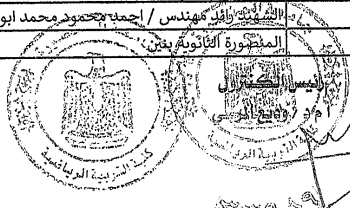 الشهيد رائد مهندس / احمد محمود محمد ابو
المنصورة الثانوية بنين
رئيس الكنترول
كلية التربية الرياضية
كلية التربية الرياضية